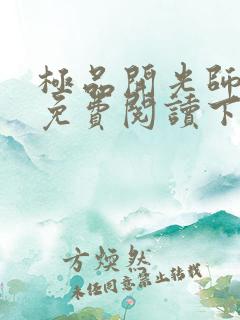 極品開光師
免費閱讀下
方煥然
未經同意禁止轉載